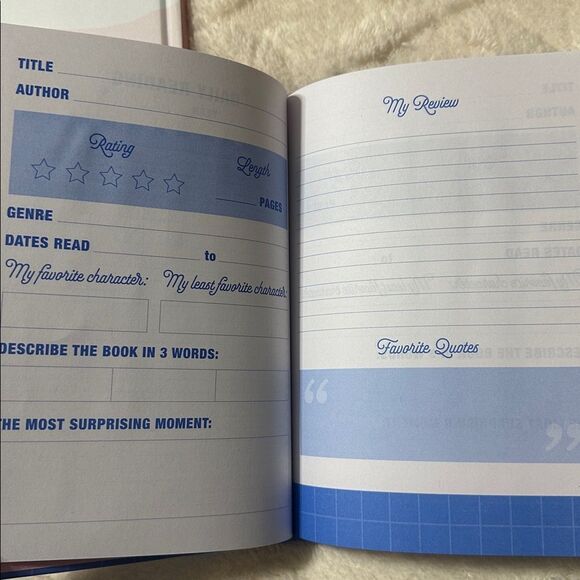 TITLE
AUTHOR
Rating
Length
PAGES
GENRE
DATES READ to
My favorite character: My least favorite character:
DESCRIBE THE BOOK IN 3 WORDS:
THE MOST SURPRISING MOMENT:
My Review
Favorite Quotes
“
”